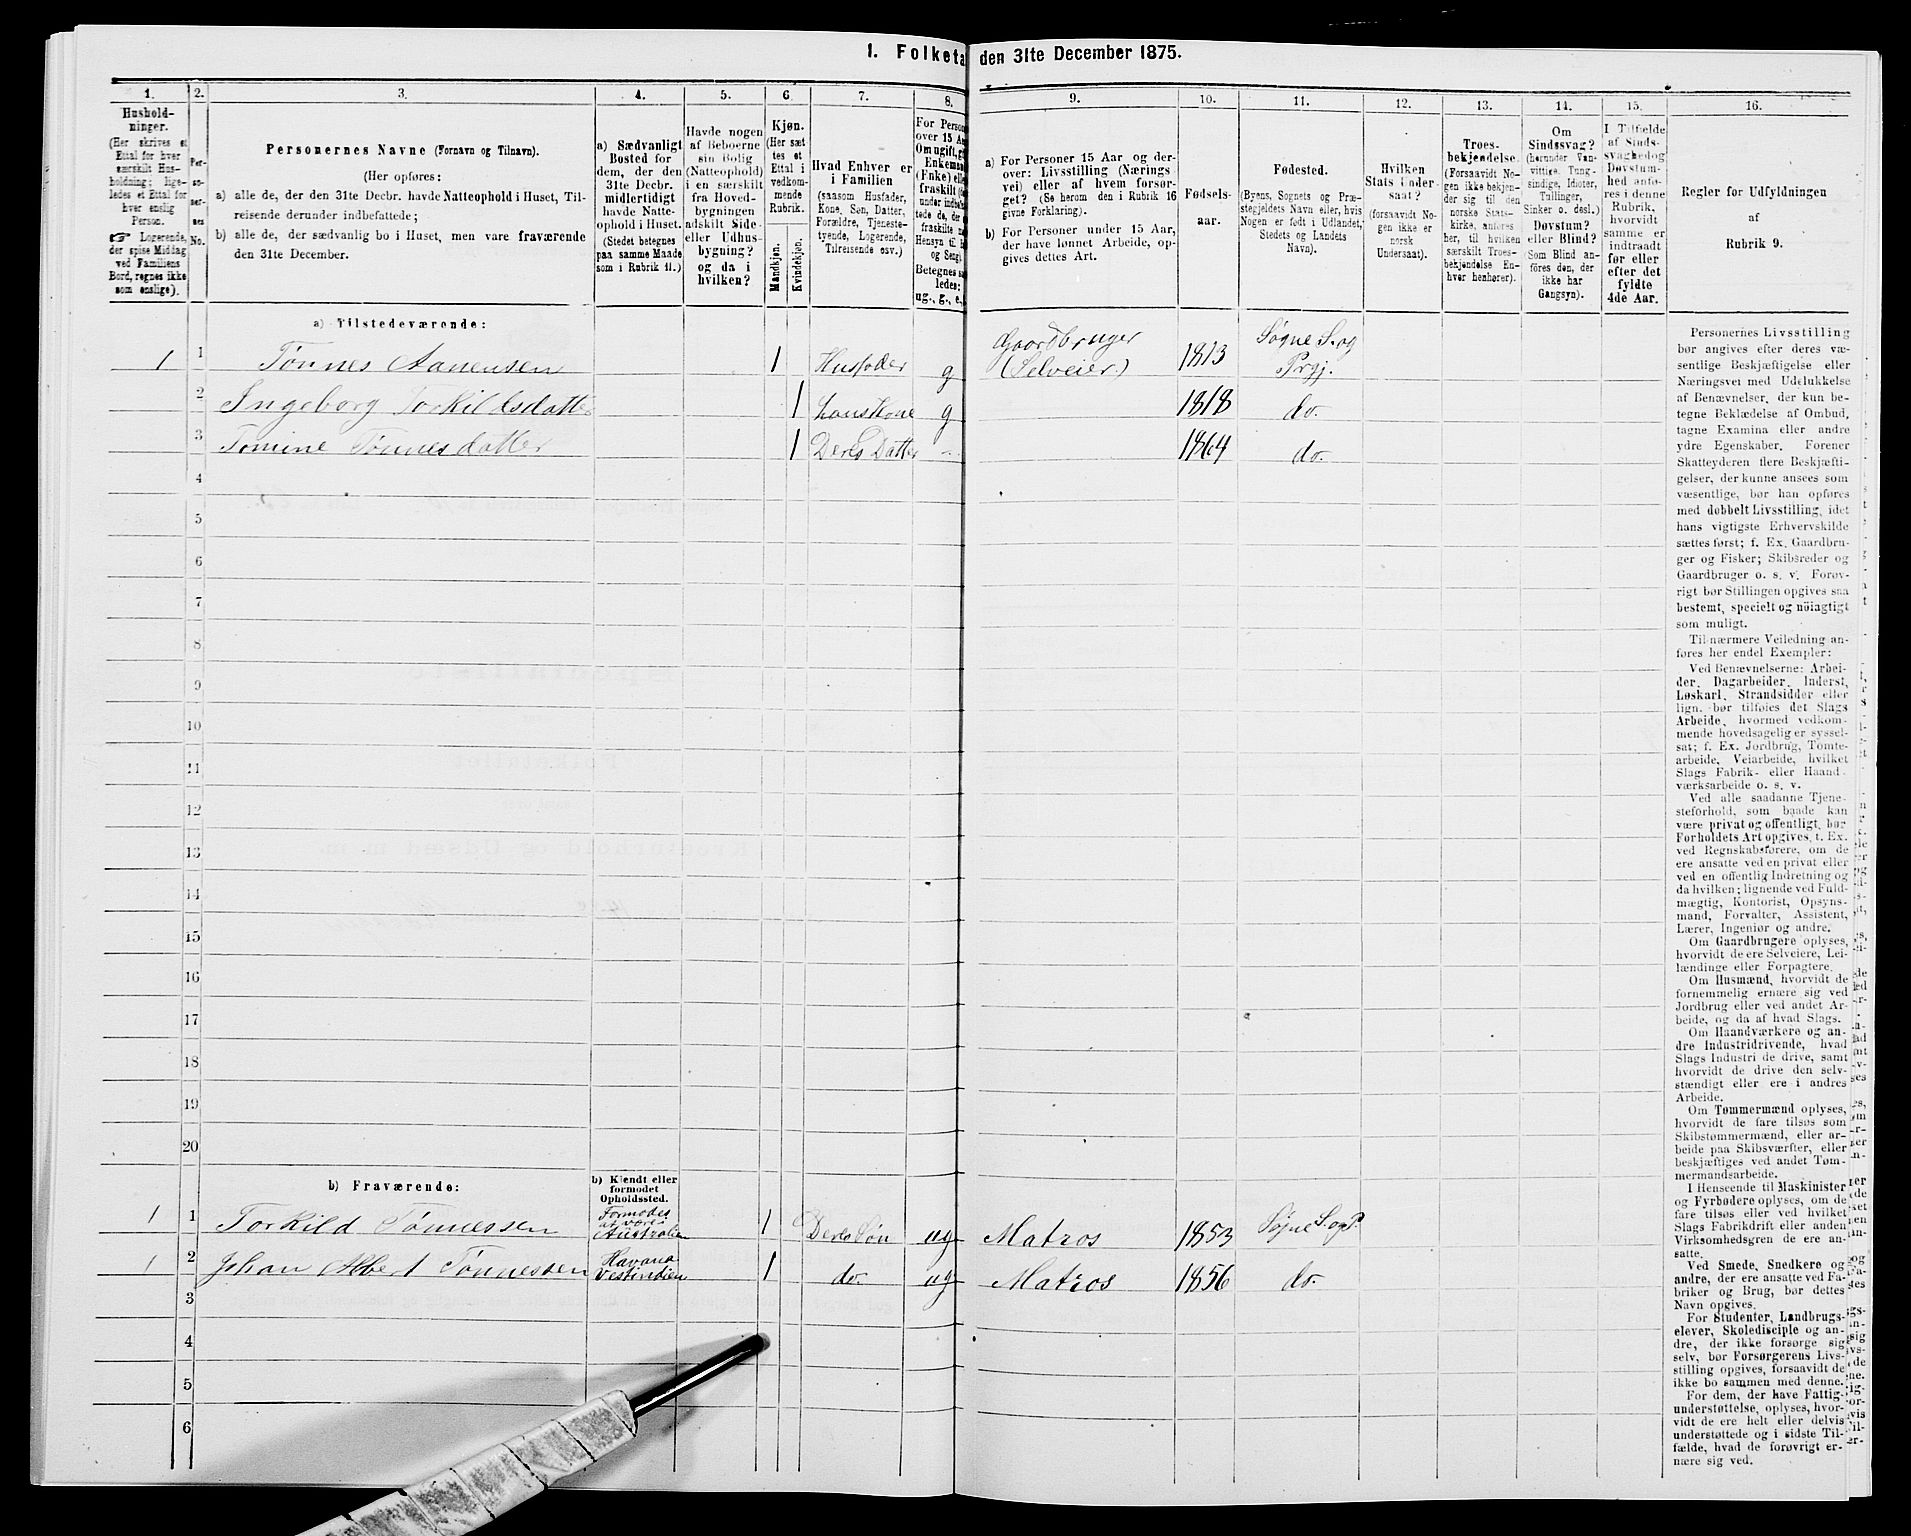 1. Folketa
den 31te December 1875.
1.
Hushold-
ninger.
(Her skrives et
Ettal for hver
særskilt Hus-
holdning; lige-
ledes et Ettal for
hver enslig
Person.
Logerende,
der spise Middag
ved Familiens
Bord, regnes ikke
som enslige).
2.
Per-
so-
ner-
nes
No.
3.
Personernes Navne (Fornavn og Tilnavn).
(Her opføres:
a) alle de, der den 31te Decbr. havde Natteophold i Huset, Til-
reisende derunder indbefattede;
b) alle de, der sædvanlig bo i Huset, men vare fraværende
den 31te December.
4.
a) Sædvanligt
Bosted for
dem, der den
31te Decbr.
midlertidigt
havde Natte-
ophold i Huset.
(Stedet betegnes
paa samme Maade
som i Rubrik 11.)
5.
Havde nogen
af Beboerne
sin Bolig
(Natteophold)
i en særskilt
fra Hoved-
bygningen
adskilt Side-
eller Udhus-
bygning?
og da i
hvilken?
6.
Kjøn.
(Her sæt
tes et
Ettal i
vedkom-
mende
Rubrik.
Mandkjøn.
Kvindekjøn.
7.
Hvad Enhver er
i Familien
(saasom Husfader,
Kone, Søn, Datter,
Forældre, Tjeneste-
tyende, Logerende,
Tilreisende osv.)
8.
For Person
over 15 Aa
Om ugift, gi
Enkemand
(Enke) elle
fraskilt
Betegnes sa
ledes:
ug., g., e.,
9.
a) For Personer 15 Aar og der-
over: Livsstilling (Nærings
vei) eller af hvem forsør-
get? (Se herom den i Rubrik 16
givne Forklaring).
b) For Personer under 15 Aar,
der have lønnet Arbeide, op-
gives dettes Art.
10.
Fødsels-
aar.
11.
Fødested.
(Byens, Sognets og Præ-
stegjeldets Navn eller, hvis
Nogen er født i Udlandet,
Stedets og Landets
Navn).
12.
Hvilken
Stats Under-
saat?
(forsaavidt No-
gen ikke er
norsk
Undersaat).
13.
Troes-
bekjendelse.
(Forsaavidt No-
gen ikke bekjen-
der sig til den
norske Stats-
kirke, anføres
her, til hvilken
særskilt Troes-
bekjendelse En-
hver henhører).
14.
Om
Sindssvag?
(herunder Van-
vittige, Tung-
sindige, Idioter,
Tullinger,
Sinker o. desl.)
Døvstum?
eller Blind?
(Som Blind an-
føres den, der
ikke har
Gangsyn).
15.
I Tilfælde
af Sinds-
svaghed og
Døvstum-
hed anfø-
res i denne
Rubrik,
hvorvidt
samme er
indtraadt
før eller
efter det
fyldte
4de Aar.
16.
Regler for Udfyldningen
af
Rubrik 9.
a) Tilstedeværende:
1 1 Tønnes Aanensen 1 Husfader g Gaardbruger (Selveier) 1813 Søgne S. og Prgj.
2 Ingeborg Torkildsdatter 1 hans Kone g 1818 do.
3 Tomine Tønnesdatter 1 Deres Datter - 1864 do.
4
5
6
7
8
9
10
11
12
13
14
15
16
17
18
19
20
b) Fraværende:
b) Kjendt eller
formodet
Opholdssted.
1 1 Torkild Tønnessen Formodes at være i Australien 1 Deres Søn ug Matros 1853 Søgne S. og P.
1 2 Johan Albert Tønnessen Havana Vestindien 1 do. ug Matros 1856 do.
3
4
5
6
Personernes Livsstilling
bør angives efter deres væ-
sentlige Beskjæftigelse eller
Næringsvei med Udelukkelse
af Benævnelser, der kun be-
tegne Beklædelse af Ombud,
tagne Examina eller andre
ydre Egenskaber. Forener
Skatteyderen flere Beskjæfti-
gelser, der kunne ansees som
væsentlige, bør han opføres
med dobbelt Livsstilling, idet
hans vigtigste Erhvervskilde
sættes først; f. Ex. Gaardbru-
ger og Fisker; Skibsreder og
Gaardbruger o. s. v. Forøv-
rigt bør Stillingen opgives saa
bestemt, specielt og nöiagtigt
som muligt.
Til nærmere Veiledning an-
føres her endel Exempler:
Ved Benævnelserne: Arbei-
der, Dagarbeider, Inderst,
Løskarl, Strandsidder eller
lign. bør tilføies det Slags
Arbeide, hvormed vedkom-
mende hovedsagelig er syssel-
sat; f. Ex. Jordbrug, Tomte-
arbeide, Veiarbeide, hvilket
Slags Fabrik- eller Haand-
værksarbeide o. s. v.
Ved alle saadanne Tjene-
steforhold, som baade kan
være privat og offentligt, bør
Forholdets Art opgives, f. Ex.
ved Regnskabsførere, om de
ere ansatte ved en privat eller
ved en offentlig Indretning og
da hvilken; lignende ved Fuld-
mægtig, Kontorist, Opsyns-
mand, Forvalter, Assistent,
Lærer, Ingeniør og andre.
Om Gaardbrugere oplyses,
hvorvidt de ere Selveiere, Lei-
lændinge eller Forpagtere.
Om Husmænd, hvorvidt de
fornemmelig ernære sig ved
Jordbrug eller ved andet Ar-
beide, og da af hvad Slags.
Om Haandværkere og an-
dre Industridrivende, hvad
Slags Industri de drive, samt
hvorvidt de drive den selv-
stændigt eller ere i andres
Arbeide.
Om Tømmermænd oplyses,
hvorvidt de fare tilsøs som
Skibstømmermænd, eller ar-
beide paa Skibsværfter, eller
beskjæftiges ved andet Tøm-
mermandsarbeide.
I Henseende til Maskinister
og Fyrbødere oplyses, om de
fare tilsøs eller ved hvilket
Slags Fabrikdrift eller anden
Virksomhedsgren de ere an-
satte.
Ved Smede, Snedkere og
andre, der ere ansatte ved Fa-
briker og Brug, bør dettes
Navn opgives.
For Studenter, Landbrugs-
elever, Skoledisciple og an-
dre, der ikke forsørge sig
selv, bør Forsørgerens Livs-
stilling opgives, forsaavidt de
ikke bo sammen med denne.
For dem, der have Fattig-
understøttelse, oplyses, hvor-
vidt de ere helt eller delvis
understøttede og i sidste Til-
fælde, hvad de forøvrigt er-
nære sig ved.